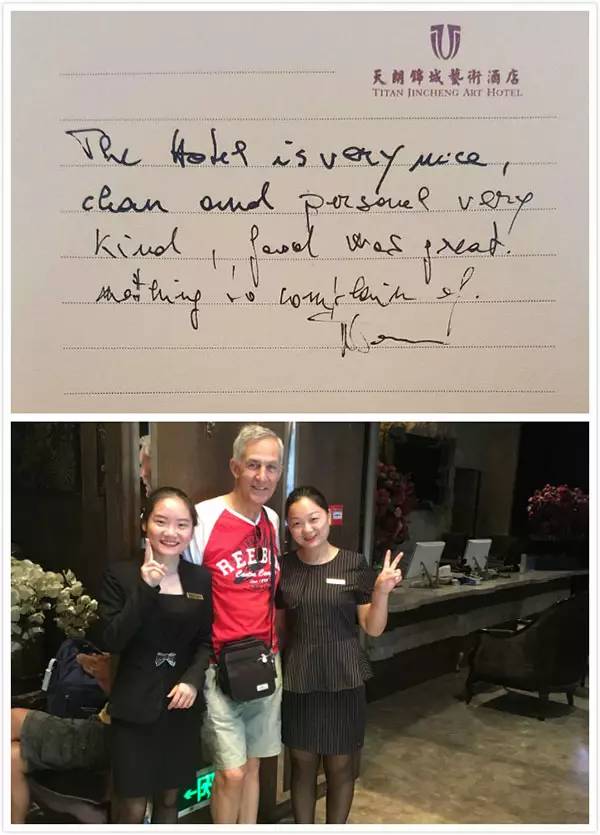 天朗錦城藝術酒店
TITAN JINCHENG ART HOTEL
The Hotel is very nice,
clean and personel very
kind, food was great.
nothing to complain of.